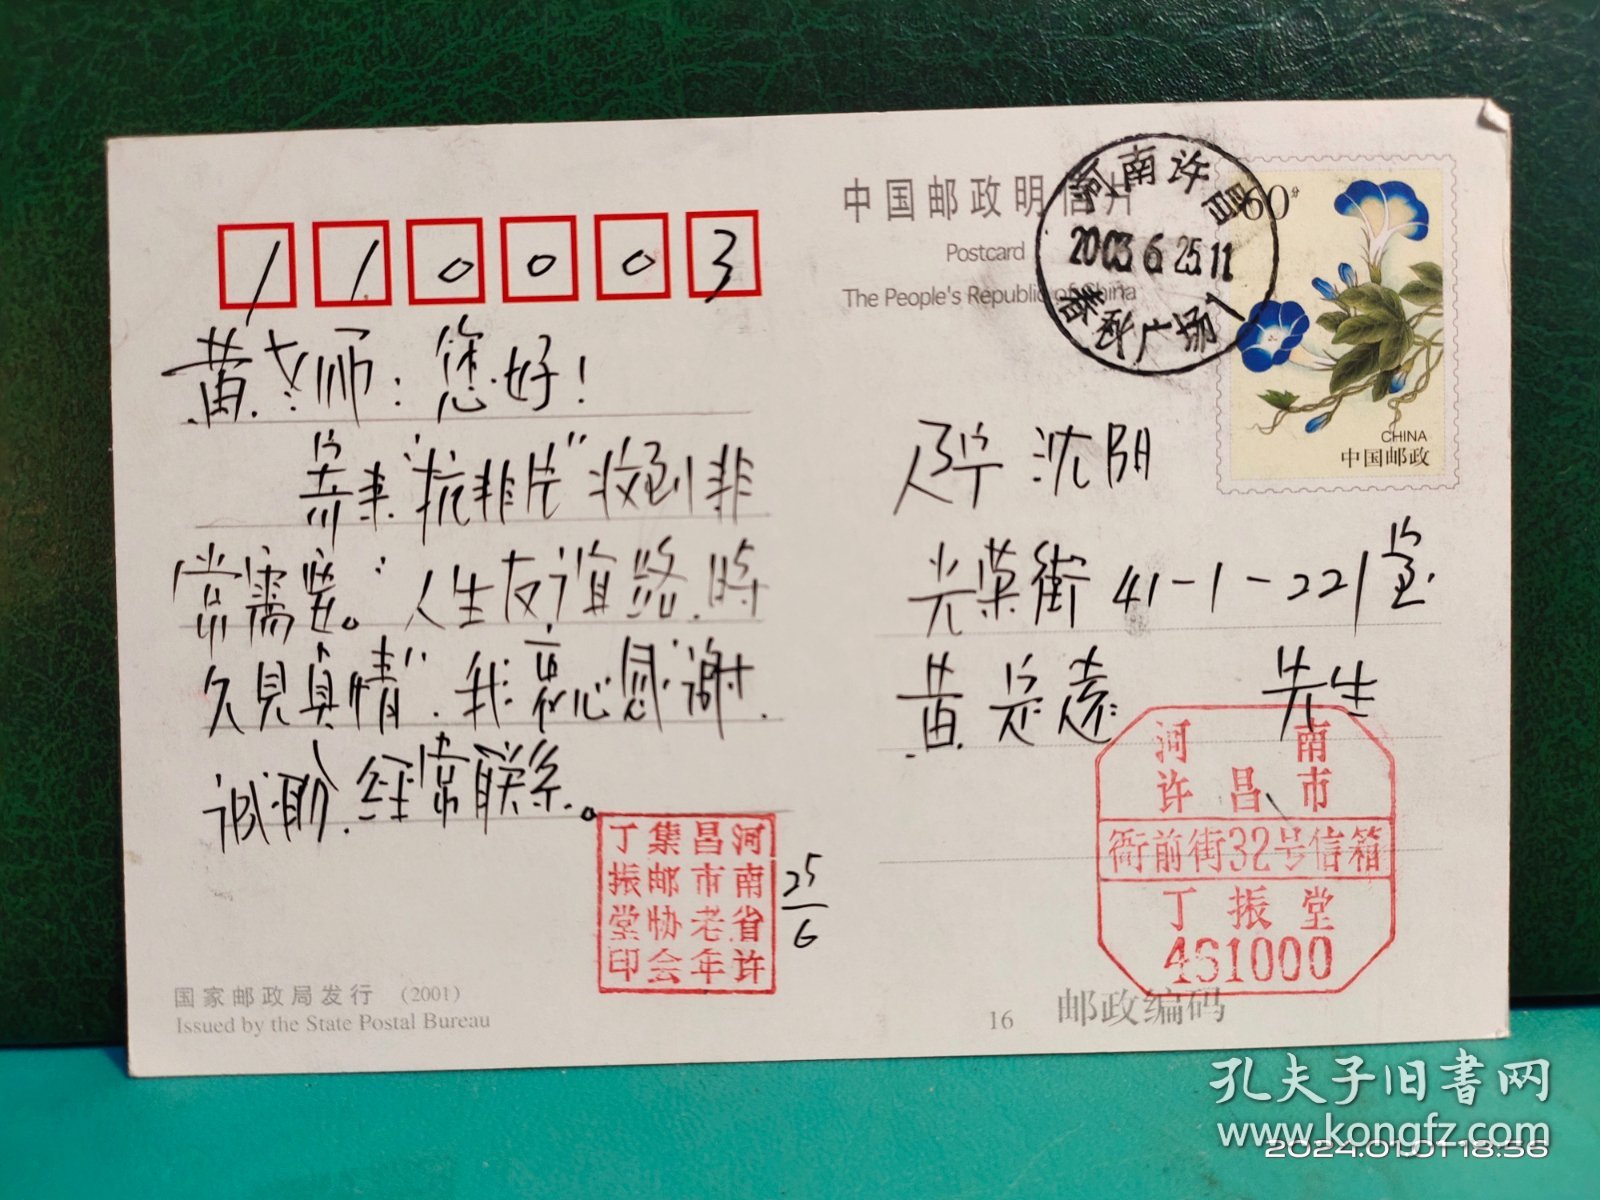 110003
黄老师：您好！
寄来“抗非片”收到非
常需要。“人生友谊路，时
久見真情”，我衷心感谢，
诚盼，经常联系。
25/6
河南省许
昌市老年
集邮协会
丁振堂印
国家邮政局发行 （2001）
Issued by the State Postal Bureau
中国邮政明信片
Postcard
The People's Republic of China
河南许昌
2003.6.25.11
广场1
60分
CHINA
中国邮政
辽宁 沈阳
光荣街 41-1-221室
黄志远 先生
河南
许昌市
衙前街32号信箱
丁振堂
461000
16
邮政编码
孔夫子旧书网
www.kongfz.com
2024.01.01 18:56